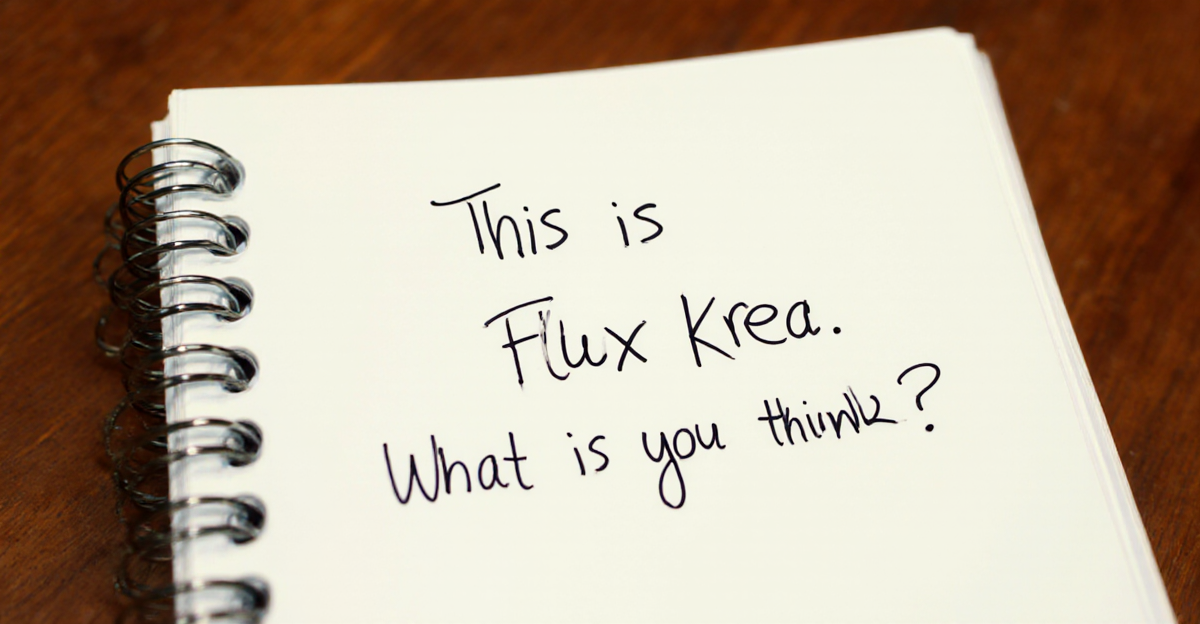 This is
Flux Krea.
What is you thiink?